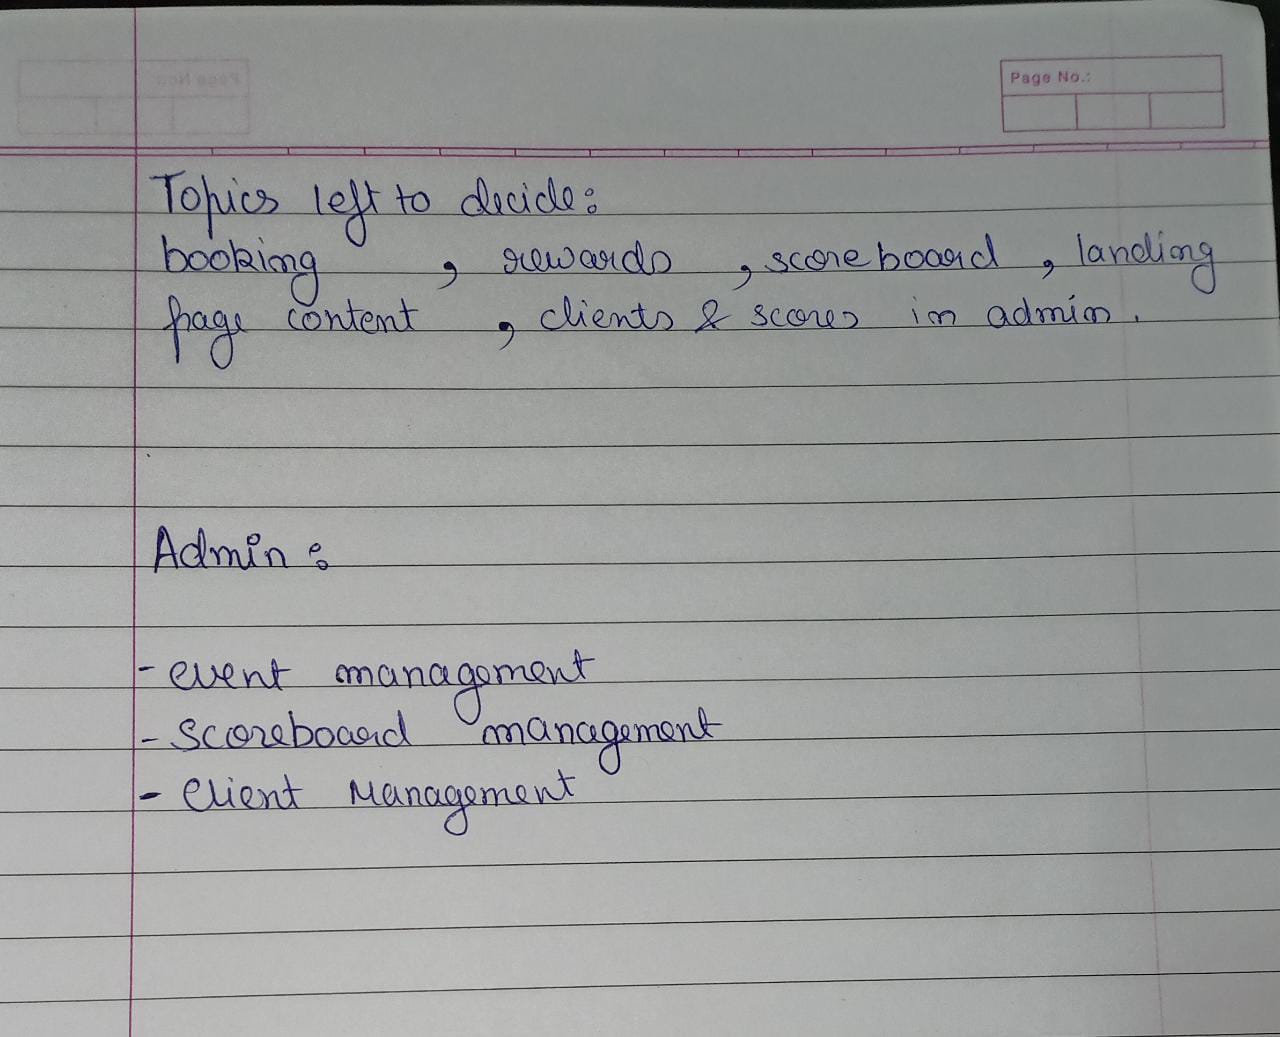 Page No.:
Topics left to decide:
booking , rewards , scoreboard , landing
page content , clients & scores in admin.
Admin :
- event management
- scoreboard management
- client management